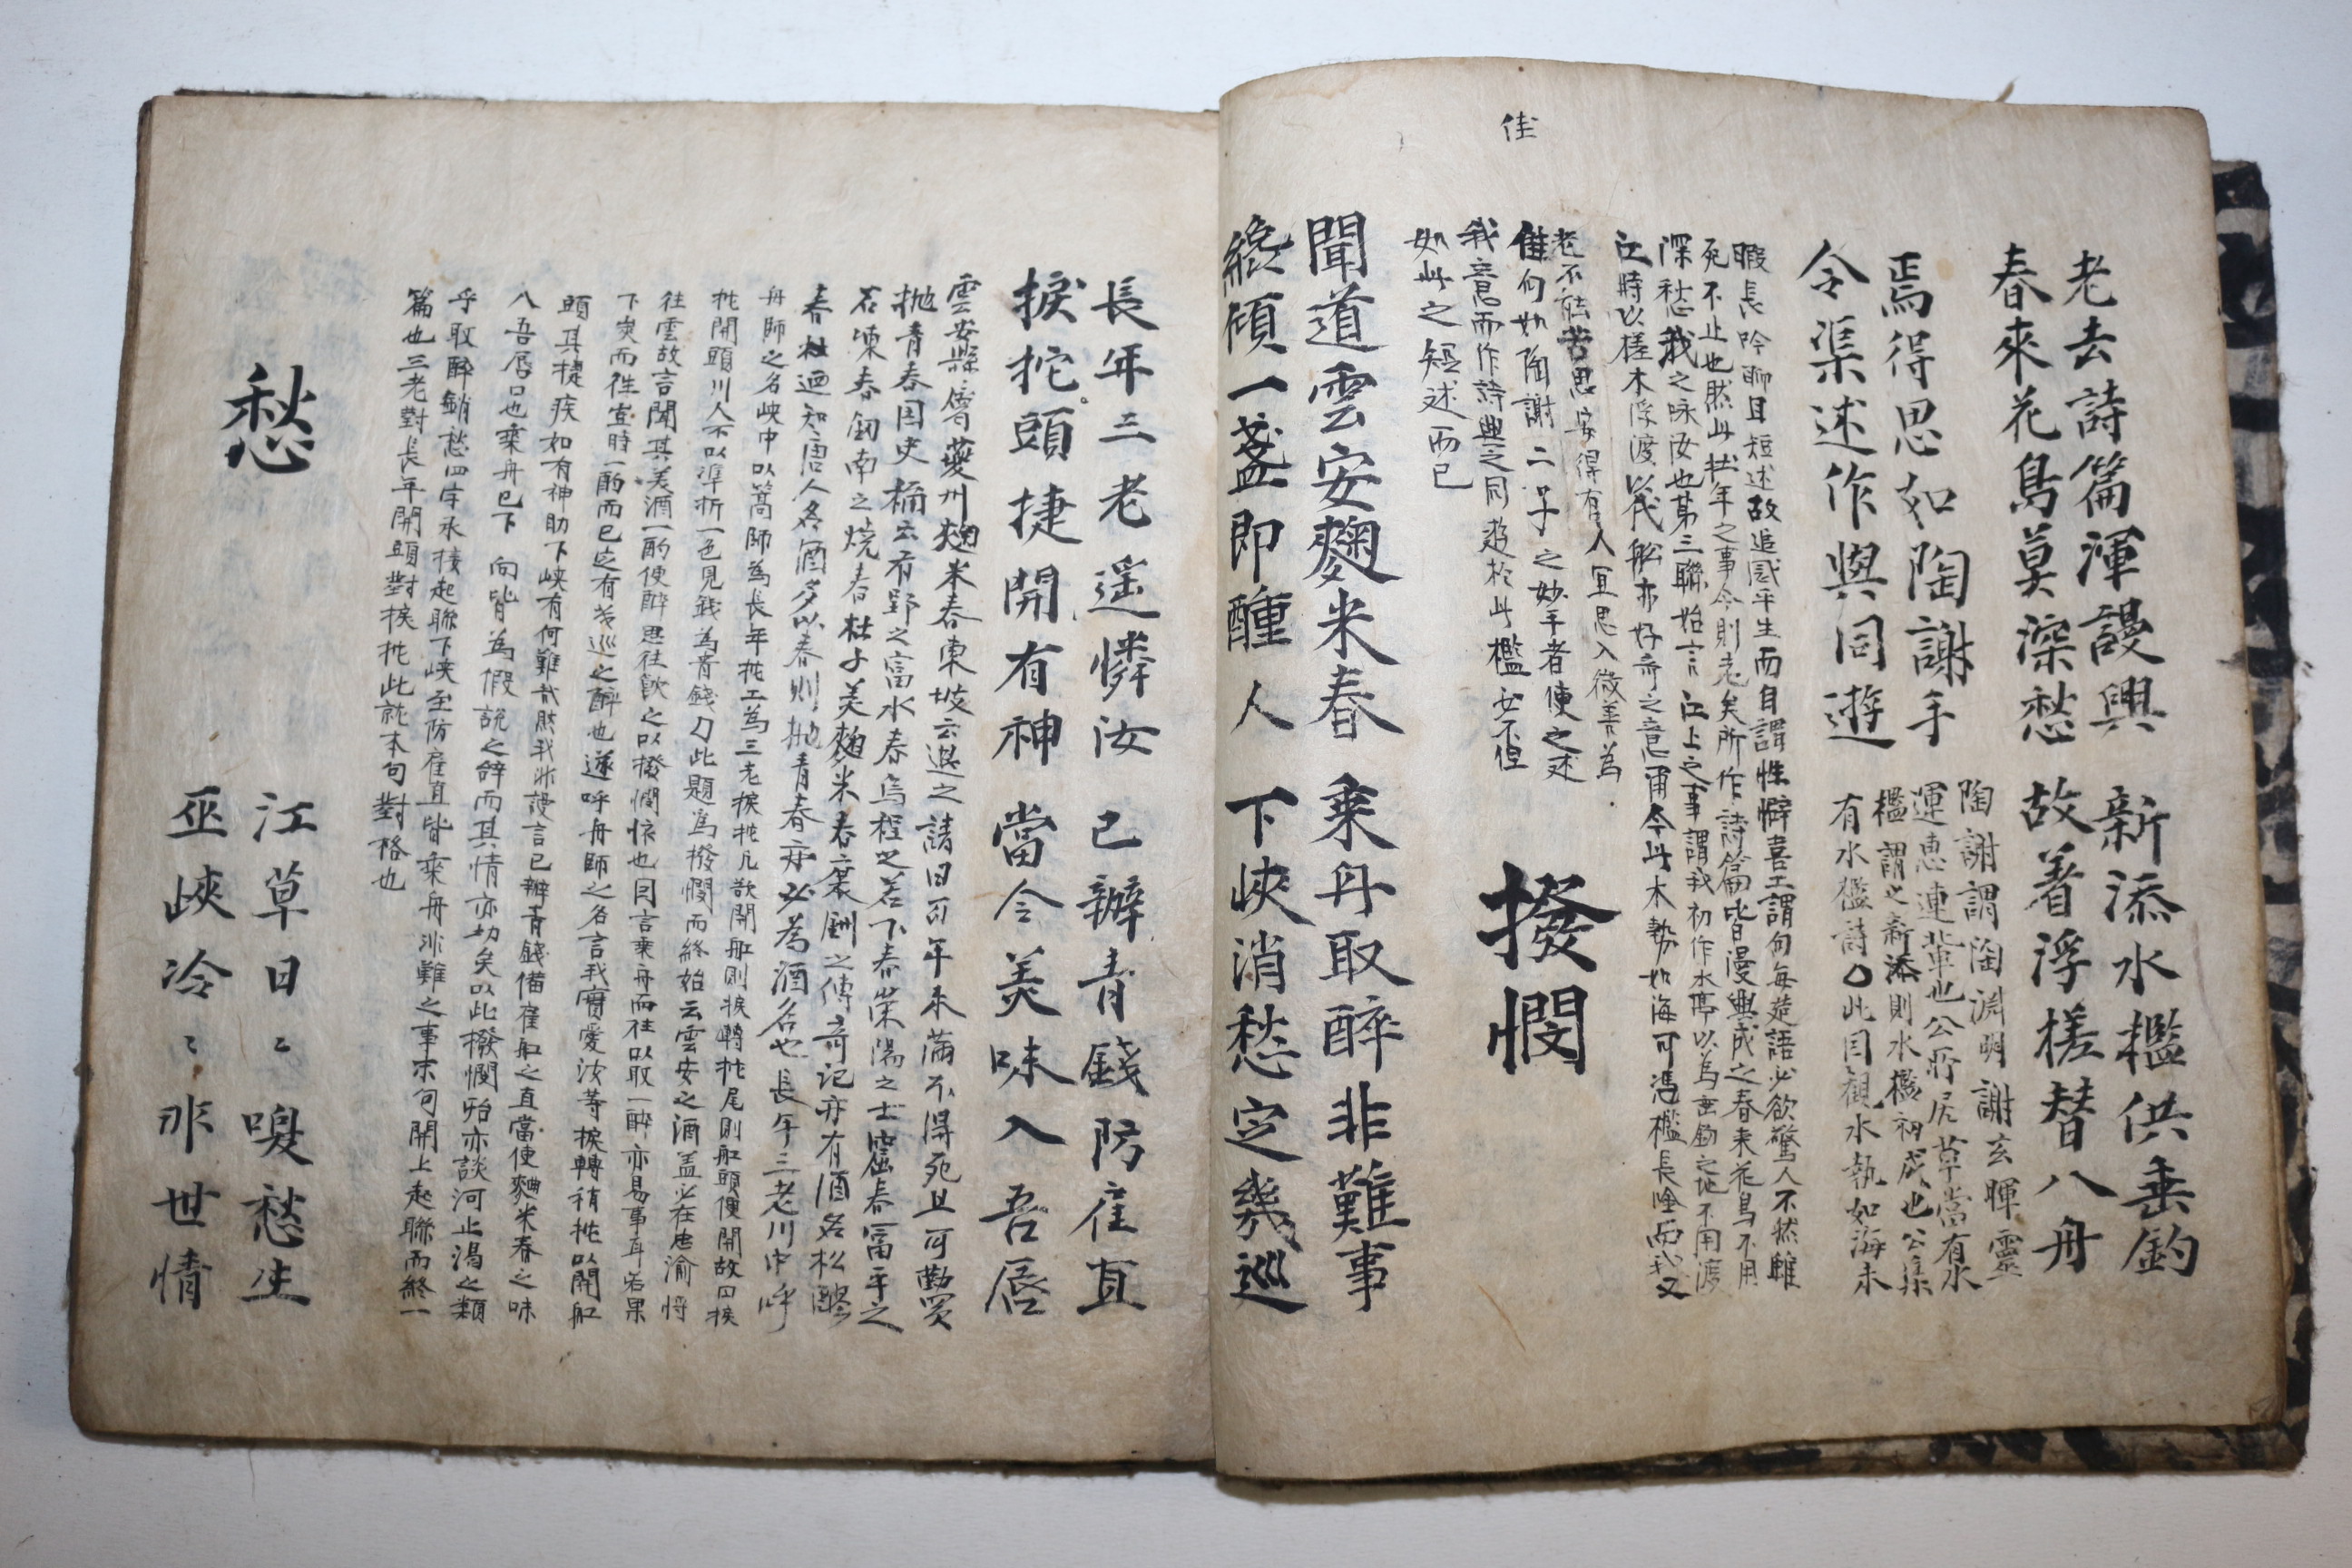 佳
老去詩篇渾謾興 新添水檻供垂釣
春來花鳥莫深愁 故着浮槎替入舟
焉得思如陶謝手
令渠述作與同遊
陶謝謂陶淵明謝玄暉靈
運惠連輩也公所居草當有水
檻謂之新添則水檻初成也公集
有水檻詩○此因觀水執如海未
暇長吟聊且短述故追感平生而自謂性癖喜工謂句每造語必欲驚人不然雖
死不止也然此壯年之事今則老矣所作詩篇皆漫興成之春來花鳥不用
深愁我之咏汝也第三聯始言江上之事謂我初作水亭以為垂釣之地不用渡
江時以槎木浮渡以代船亦好奇之意甫今此木勢如海可馮檻長唫而我又
老不能苦思安得有人宜思入微善為
佳句如陶謝二子之妙手者使之述
我意而作詩與之同遊於此檻安不但
如此之短述而已
撥憫
聞道雲安麴米春 乘舟取醉非難事
纔傾一盞即醺人 下峽消愁定幾巡
長年三老遥憐汝 已辦青錢防雇直
捩柁頭捷開有神 當令美味入吾唇
雲安縣屬夔州麯米春東坡云退之詩曰百年未滿不得死且可勤買
抛青春国史補云有郢之富水春烏程之若下春滎陽之土窟春富平之
石凍春劒南之燒春杜子美麯米春裴鉶之傳奇記亦有酒名松醪
春杜迺知唐人名酒多以春則抛青春亦必為酒名也長年三老川中呼
舟師之名峽中以篙師為長年柁工為三老捩柁凡欲開船則捩轉柁尾則船頭便開故曰捩
柁開頭川人不以準折一色見錢為青錢 此題為撥憫而終始云雲安之酒盖必在忠渝将
往雲故言聞其美酒一酌便醉思往飲之以撥憫懷也因言乗舟而往以取一醉亦易事耳若果
下峽而往豈時一酌而已定有幾巡之醉也遂呼舟師之名言我實愛汝等捩轉稍柁以開船
頭其捷疾如有神助下峽有何難哉然我非謾言已辦青錢備雇船之直當使麯米春之味
入吾唇口也乗舟已下 句皆為假說之辭而其情亦切矣以此撥憫殆亦談河止渴之類
乎取醉銷愁四字承接起聯下峽至防雇直皆乗舟非難之事末句開上起聯而終一
篇也三老對長年開頭對捩柁此就本句對格也
愁
江草日〻喚愁生
巫峽冷〻非世情